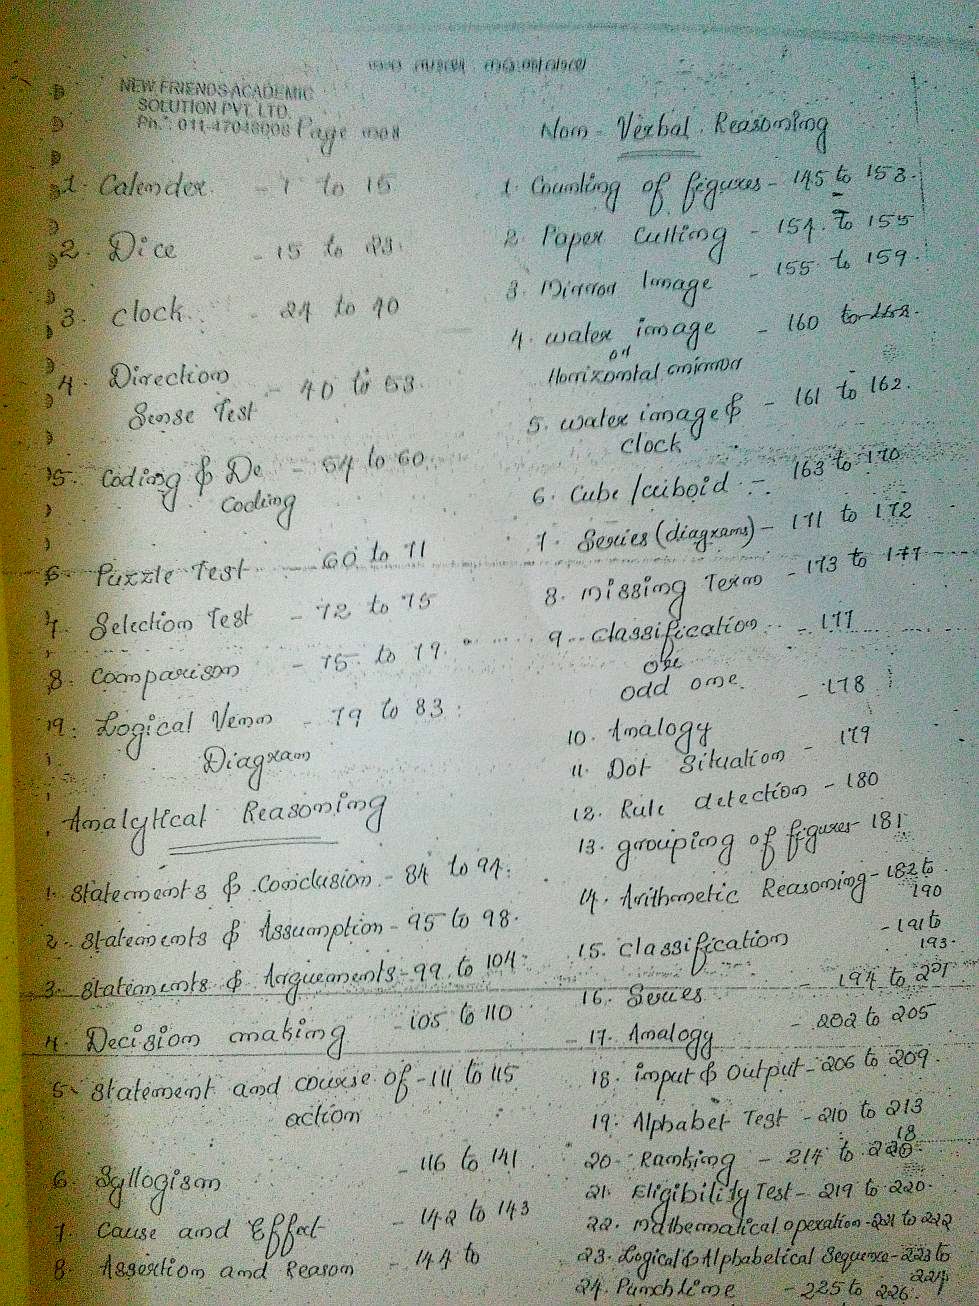 NEW FRIENDS ACADEMIC
SOLUTION PVT. LTD.
Ph.: 011-47048008 Page
1. Calender. - 1 to 15
2. Dice - 15 to 23.
3. clock. - 24 to 40
4. Direction - 40 to 53.
Sense Test
5. Coding & De - 54 to 60
Coding
6. Puzzle Test - 60 to 71
7. Selection Test - 72 to 75
8. Comparison - 75 to 79.
9. Logical Venn - 79 to 83.
Diagram
Analytical Reasoning
1. Statements & Conclusion - 84 to 94.
2. Statements & Assumption - 95 to 98.
3. Statements & Arguements - 99 to 104.
4. Decision making - 105 to 110
5. Statement and course of - 111 to 115
action
6. Syllogism - 116 to 141
7. Cause and Effect - 142 to 143
8. Assertion and Reason - 144 to
Non-Verbal Reasoning
1. Counting of figures - 145 to 153.
2. Paper Cutting - 154 to 155
3. Mirror Image - 155 to 159.
4. water image - 160 to
or
Horizontal mirror
5. water image & - 161 to 162.
clock
6. Cube/cuboid - 163 to 170
7. Series (diagrams) - 171 to 172
8. missing Term - 173 to 177
9. classification - 177
odd one
10. Analogy - 178
11. Dot Situation - 179
12. Rule detection - 180
13. grouping of figures - 181
14. Arithmetic Reasoning - 182 to
190
15. Classification - 191 to
193.
16. Series - 194 to 201
17. Analogy - 202 to 205
18. input & Output - 206 to 209.
19. Alphabet Test - 210 to 213
20. Ranking - 214 to 18
21. Eligibility Test - 219 to 220.
22. mathematical operation - 221 to 222
23. Logical & Alphabetical Sequence - 223 to
224
24. Punchline - 225 to 226.